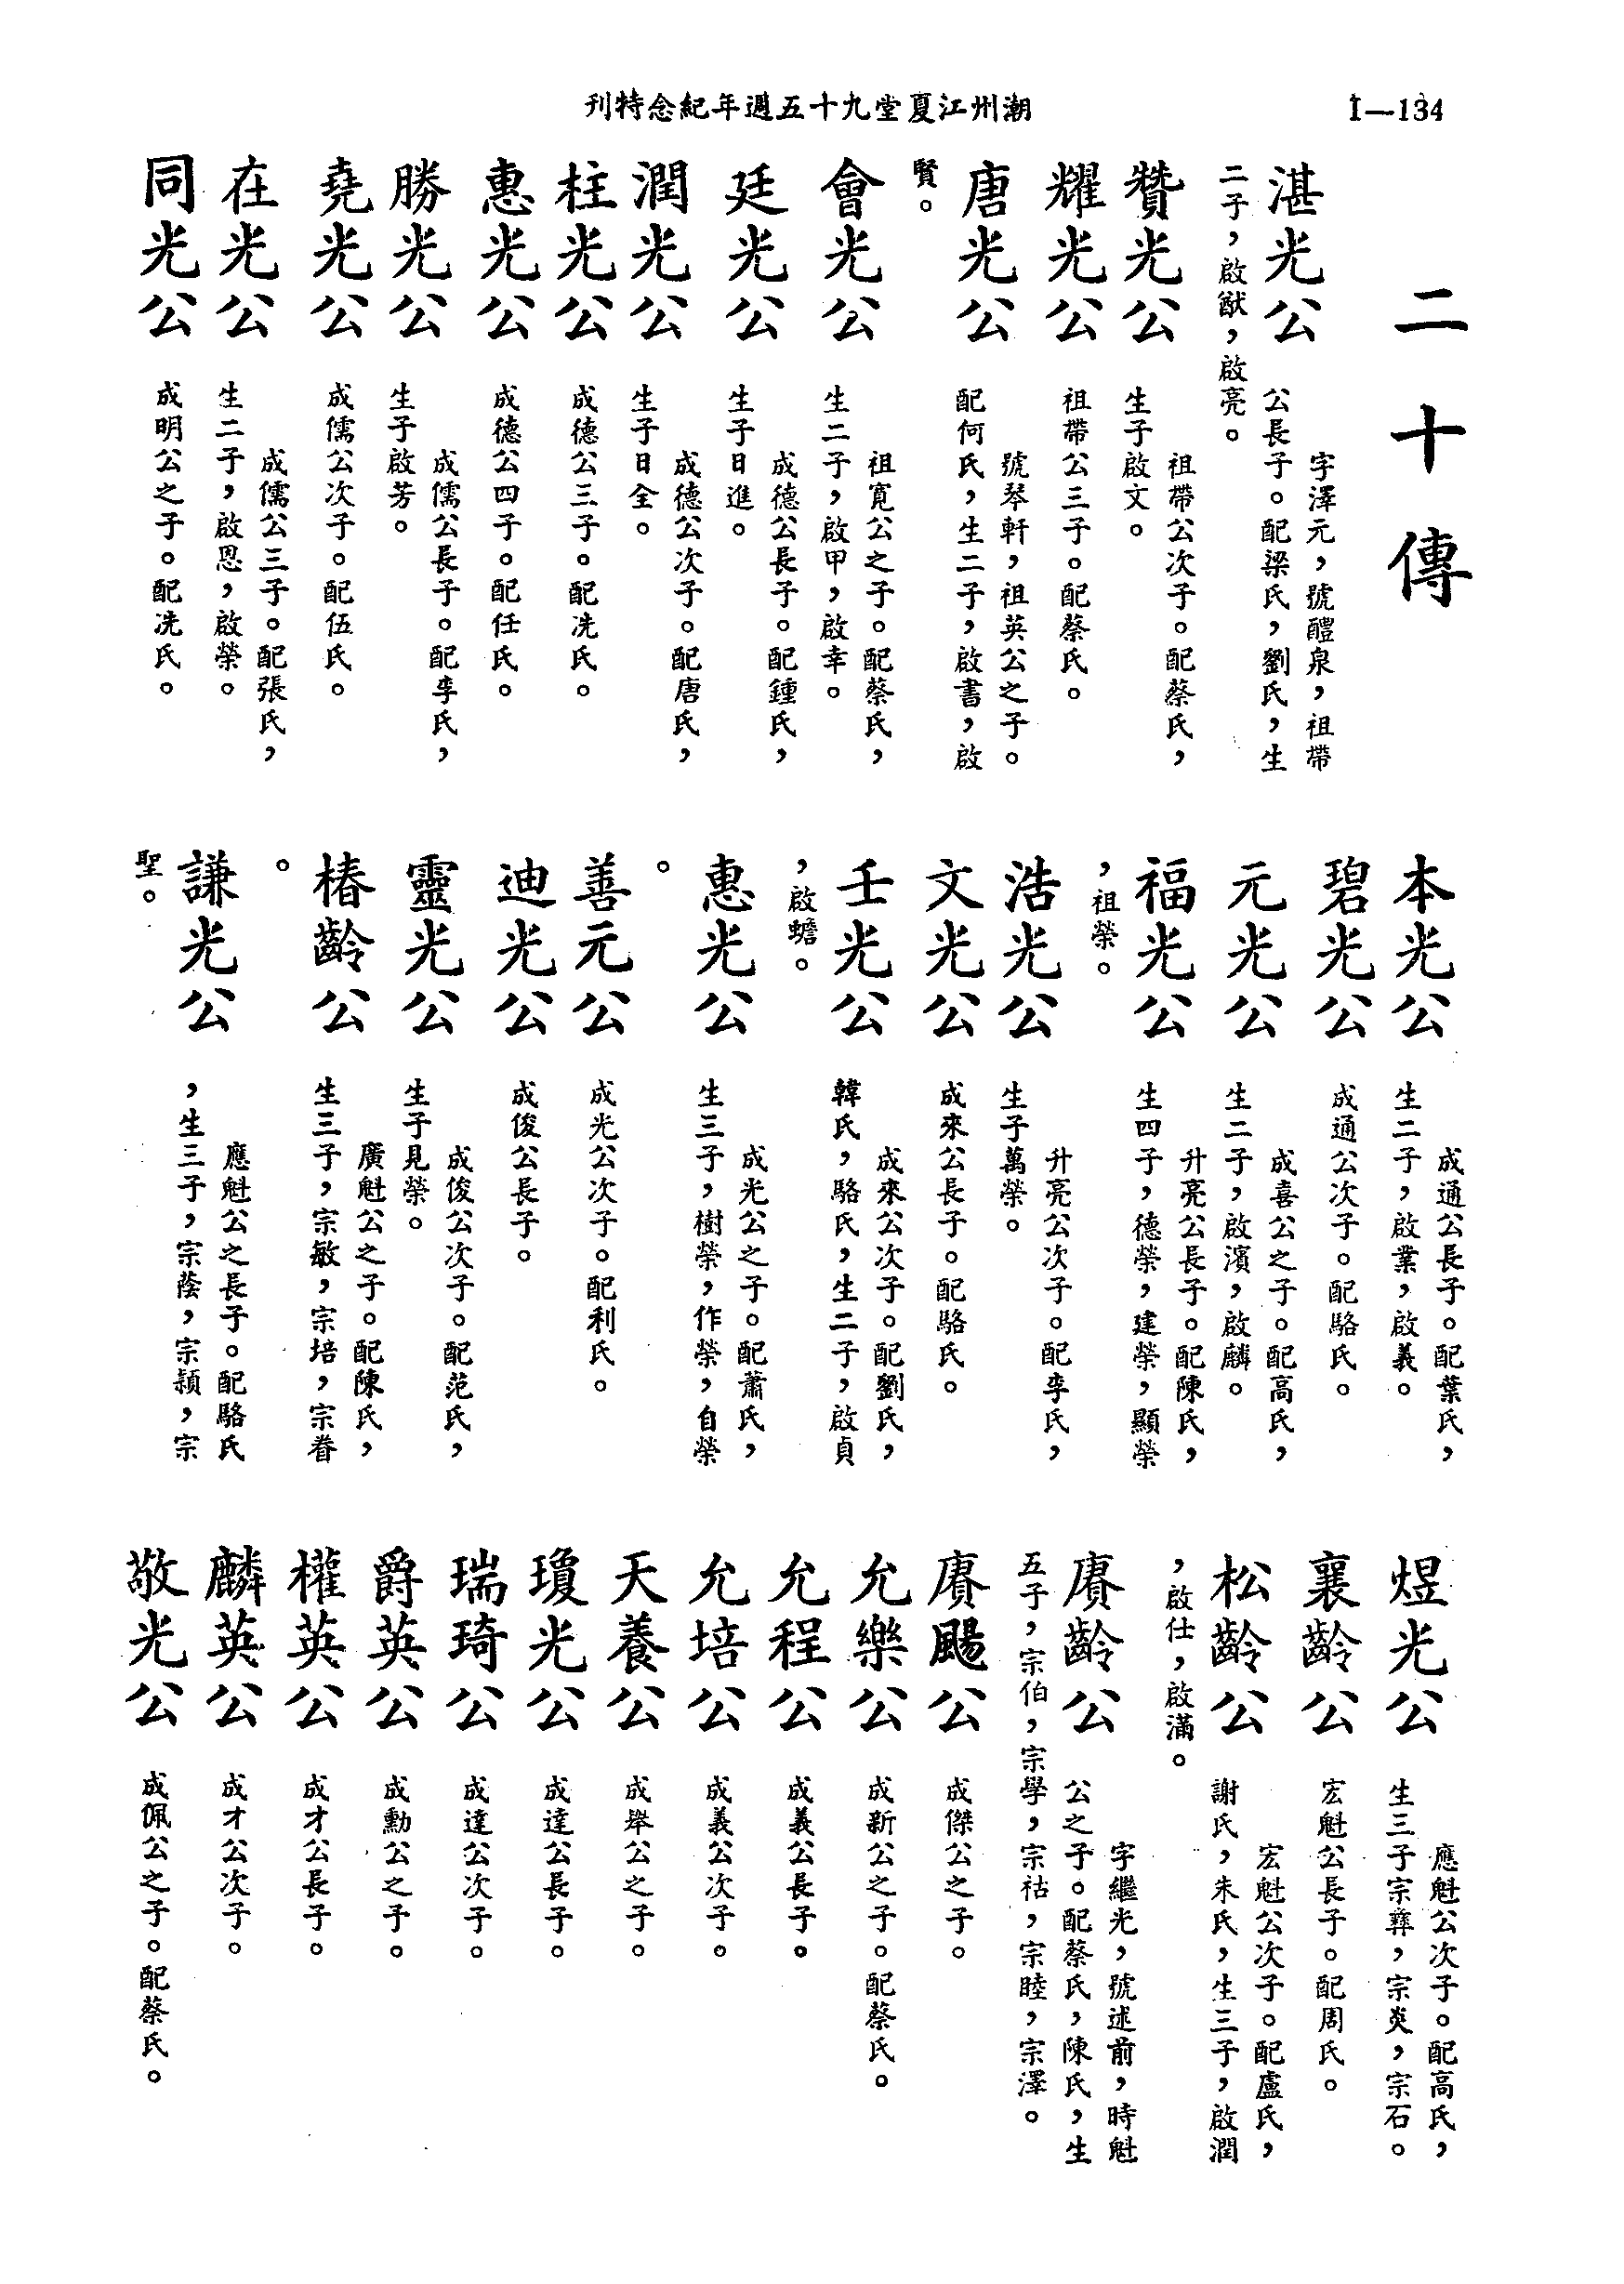 潮州江夏堂九十五週年紀念特刊
I—134
二十傳
湛光公
字澤元，號醴泉，祖帶
公長子。配梁氏，劉氏，生
二子，啟猷，啟亮。
贊光公
祖帶公次子。配蔡氏，
生子啟文。
耀光公
祖帶公三子。配蔡氏。
唐光公
號琴軒，祖英公之子。
配何氏，生二子，啟書，啟
賢。
會光公
祖寬公之子。配蔡氏，
生二子，啟甲，啟幸。
廷光公
成德公長子。配鍾氏，
生子日進。
潤光公
成德公次子。配唐氏，
生子日全。
柱光公
成德公三子。配冼氏。
惠光公
成德公四子。配任氏。
勝光公
成儒公長子。配李氏，
生子啟芳。
堯光公
成儒公次子。配伍氏。
在光公
成儒公三子。配張氏，
生二子，啟恩，啟榮。
同光公
成明公之子。配冼氏。
本光公
成通公長子。配葉氏，
生二子，啟業，啟義。
碧光公
成通公次子。配駱氏。
元光公
成喜公之子。配高氏，
生二子，啟濱，啟麟。
福光公
升亮公長子。配陳氏，
生四子，德榮，建榮，顯榮
，祖榮。
浩光公
升亮公次子。配李氏，
生子萬榮。
文光公
成來公長子。配駱氏。
壬光公
成來公次子。配劉氏，
韓氏，駱氏，生二子，啟貞
，啟蟾。
惠光公
成光公之子。配蕭氏，
生三子，樹榮，作榮，自榮
。
善元公
成光公次子。配利氏。
迪光公
成俊公長子。
靈光公
成俊公次子。配范氏，
生子見榮。
椿齡公
廣魁公之子。配陳氏，
生三子，宗敏，宗培，宗眷
。
謙光公
應魁公之長子。配駱氏
，生三子，宗蔭，宗穎，宗
聖。
煜光公
應魁公次子。配高氏，
生三子宗彞，宗炎，宗石。
襄齡公
宏魁公長子。配周氏。
松齡公
宏魁公次子。配盧氏，
謝氏，朱氏，生三子，啟潤
，啟仕，啟滿。
賡齡公
字繼光，號述前，時魁
公之子。配蔡氏，陳氏，生
五子，宗伯，宗學，宗祜，宗睦，宗澤。
賡颺公
成傑公之子。
允樂公
成新公之子。配蔡氏。
允程公
成義公長子。
允培公
成義公次子。
天養公
成舉公之子。
瓊光公
成達公長子。
瑞琦公
成達公次子。
爵英公
成勳公之子。
權英公
成才公長子。
麟英公
成才公次子。
敬光公
成佩公之子。配蔡氏。